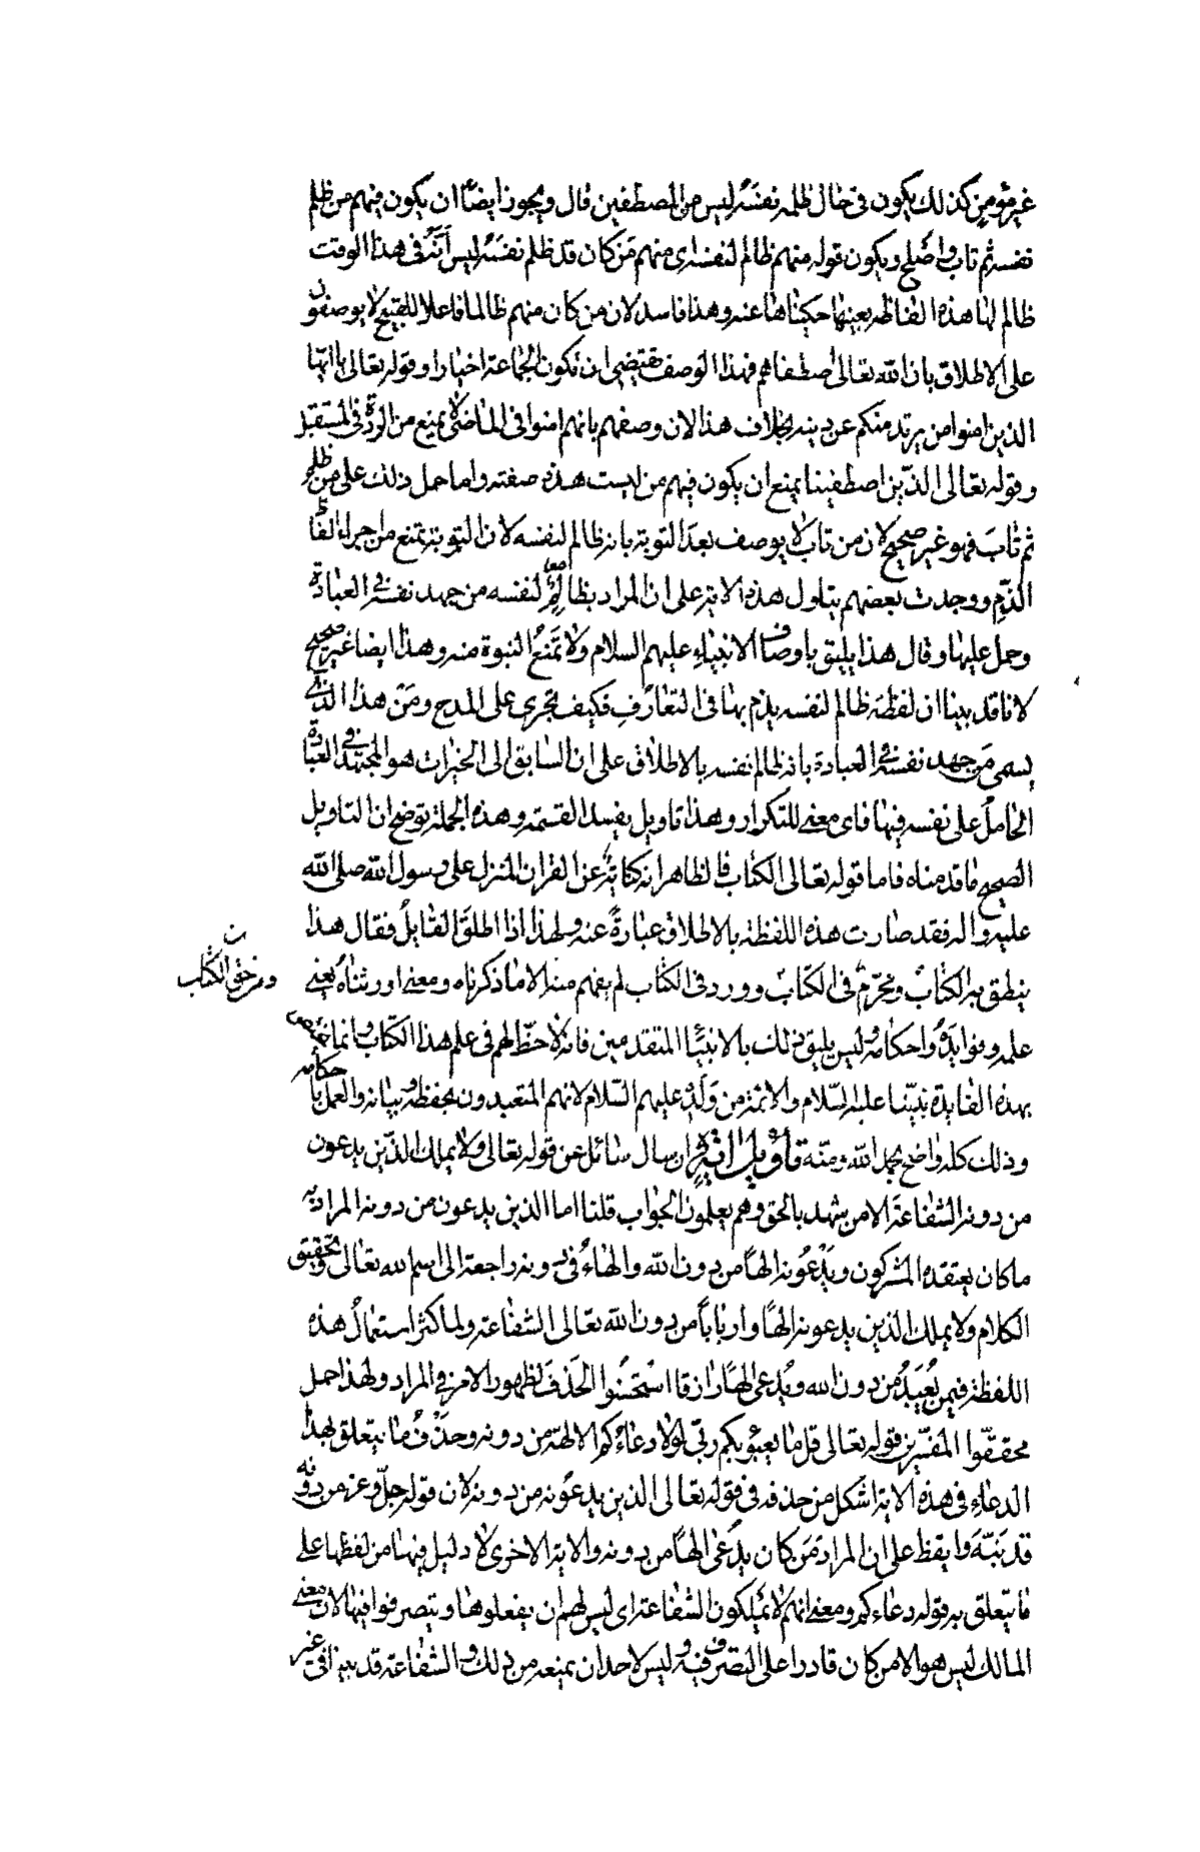 غير مؤمن كذلك يكون فى حال ظلمه نفسه ليس من المصطفين قال ويجوز ايضا ان يكون فيهم من ظلم
نفسه ثم تاب واصلح ويكون قوله منهم ظالم لنفسه اى منهم من كان قد ظلم نفسه ليس انه فى هذا الوقت
ظالم لها هذه الفاظه بعينها حكيناها عنه وهذا فاسد لان من كان منهم ظالما فاعلا للقبيح لا يوصفون
على الاطلاق بان الله تعالى اصطفاهم فهذا الوصف يقتضى ان تكون الجماعة اخيارا وقوله تعالى يا ايها
الذين امنوا من يرتد منكم عن دينه بخلاف هذا لان وصفهم بانهم امنوا فى الماضى لا يمنع من الردة فى المستقبل
وقوله تعالى الذين اصطفينا يمنع ان يكون فيهم من ليست هذه صفته واما حمل ذلك على من ظلم
ثم تاب فهو غير صحيح لان من تاب لا يوصف بعد التوبة بانه ظالم لنفسه لان التوبة تمنع من اجراء الفاظ
الذم ووجدت بعضهم يتاول هذه الاية على ان المراد بظالم لنفسه من جهد نفسه فى العبادة
وحمل عليها وقال هذا يليق باوصاف الانبياء عليهم السلام ولا تمنع النبوة منه وهذا ايضا غير صحيح
لانا قد بينا ان لفظة ظالم لنفسه يذم بها فى التعارف فكيف تجرى على المدح ومن هذا الذى
يسمى من جهد نفسه فى العبادة بانه ظالم نفسه بالاطلاق على ان السابق الى الخيرات هو المجتهد فى العبادة
الحامل على نفسه فيها فاى معنى للتكرار وهذا تاويل يفسد القسمة وهذه الجملة توضح ان التاويل
الصحيح ما قدمناه فاما قوله تعالى الكتاب فالظاهر انه كناية عن القران المنزل على رسول الله صلى الله
عليه واله فقد صارت هذه اللفظة بالاطلاق عبارة عنه ولهذا اذا اطلق القايل فقال هذا
ينطق به الكتاب ومحرم فى الكتاب وورد فى الكتاب لم يفهم منه الا ما ذكرناه ومعنى اورثناه يعنى
علمه وفوايده واحكامه وليس يليق ذلك بالانبياء المتقدمين فانه لا حظ لهم فى علم هذا الكتاب وانما
بهذه الفايدة نبينا عليه السلام والائمة من ولده عليهم السلام لانهم المتعبدون بحفظه وبيانه والعمل باحكامه
وذلك كله واضح بحمد الله ومنه تاويل اية اخرى ان سال سائل عن قوله تعالى ولا يملك الذين يدعون
من دونه الشفاعة الا من شهد بالحق وهم يعلمون الجواب قلنا اما الذين يدعون من دونه المراد به
ما كان يعتقده المشركون ويدعونه الها من دون الله والهاء فى دونه راجعة الى اسم الله تعالى وتحقيق
الكلام ولا يملك الذين يدعونه الها واربابا من دون الله تعالى الشفاعة ولما كثر استعمال هذه
اللفظة فيمن يعبد من دون الله ويدعى الها رازقا استحسنوا الحذف لظهور الامر فى المراد ولهذا حمل
محققوا المفسرين قوله تعالى قل ما يعبؤ بكم ربى لولا دعاؤكم الالهة من دونه وحذف ما يتعلق بهذا
الدعاء فى هذه الاية اشكل من حذفه فى قوله تعالى الذين يدعونه من دونه لان قوله جل وعز من دونه
قد نبه وايقظ على ان المراد من كان يدعى الها من دونه والاية الاخرى لا دليل فيها من لفظها على
ما يتعلق به قوله دعاءكم ومعنى انهم لا يملكون الشفاعة اى ليس لهم ان يفعلوها ويتصرفوا فيها لان معنى
المالك ليس هو الا من كان قادرا على التصرف فيه وليس لاحد ان يمنعه من ذلك والشفاعة قد بينا فى غير